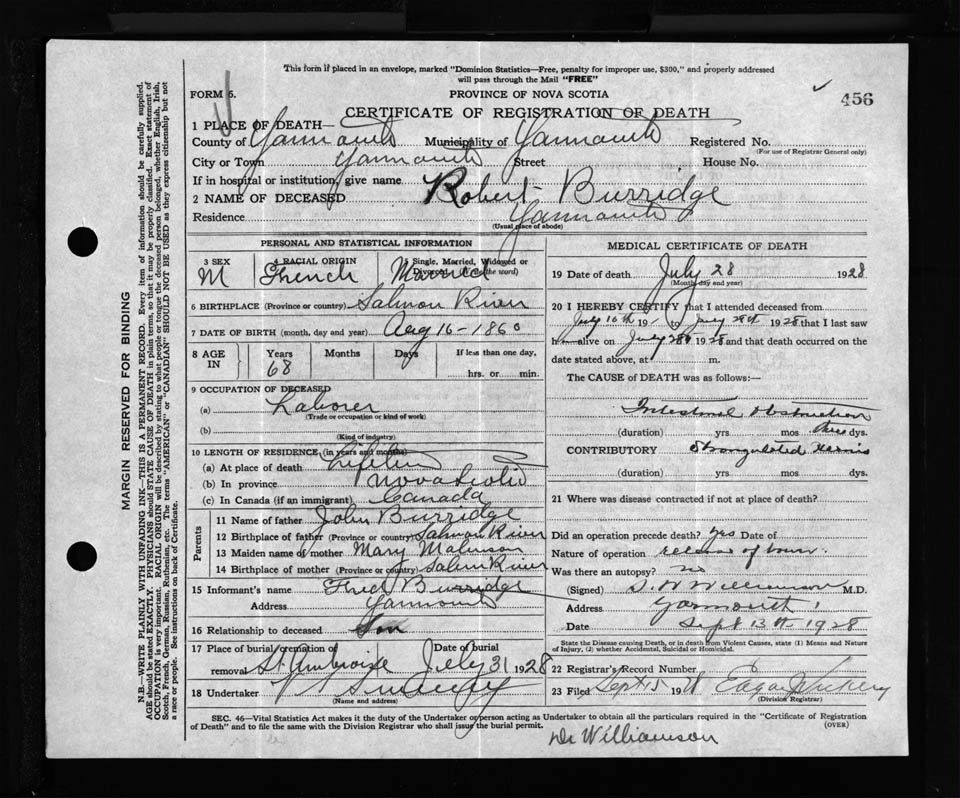 This form if placed in an envelope, marked "Dominion Statistics—Free, penalty for improper use, $300," and properly addressed
will pass through the Mail "FREE"
FORM 6.
PROVINCE OF NOVA SCOTIA
456
CERTIFICATE OF REGISTRATION OF DEATH
1 PLACE OF DEATH—
County of Yarmouth Municipality of Yarmouth Registered No.
(For use of Registrar General only)
City or Town Yarmouth Street House No.
If in hospital or institution, give name
2 NAME OF DECEASED Robert Burridge
Residence Yarmouth
(Usual place of abode)
PERSONAL AND STATISTICAL INFORMATION
3 SEX 4 RACIAL ORIGIN 5 Single, Married, Widowed or Divorced (write the word)
M French Married
6 BIRTHPLACE (Province or country) Salmon River
7 DATE OF BIRTH (month, day and year) Aug 16-1860
8 AGE IN Years Months Days If less than one day,
68 hrs. or min.
9 OCCUPATION OF DECEASED
(a) Laborer
(Trade or occupation or kind of work)
(b)
(Kind of industry)
10 LENGTH OF RESIDENCE (in years and months)
(a) At place of death
(b) In province Nova Scotia
(c) In Canada (if an immigrant) Canada
Parents
11 Name of father John Burridge
12 Birthplace of father (Province or country) Salmon River
13 Maiden name of mother Mary
14 Birthplace of mother (Province or country) Salmon River
15 Informant's name Fred Burridge
Address Yarmouth
16 Relationship to deceased Son
17 Place of burial, cremation or removal St. Ambroise Date of burial July 31 1928
18 Undertaker Sweeny
(Name and address)
MEDICAL CERTIFICATE OF DEATH
19 Date of death July 28 1928
(Month, day and year)
20 I HEREBY CERTIFY that I attended deceased from
July 16th 19 to July 28th 1928 that I last saw
him alive on July 28th 1928 and that death occurred on the
date stated above, at m.
The CAUSE OF DEATH was as follows:—
Intestinal Obstruction
(duration) yrs mos three dys.
CONTRIBUTORY Strangulated Hernia
(duration) yrs mos dys.
21 Where was disease contracted if not at place of death?
Did an operation precede death? yes Date of
Nature of operation release of bowel.
Was there an autopsy? no
(Signed) S. W. Williamson M.D.
Address Yarmouth
Date Sept 13th 1928
State the Disease causing Death, or in death from Violent Causes, state (1) Means and Nature
of Injury, (2) whether Accidental, Suicidal or Homicidal.
22 Registrar's Record Number
23 Filed Sept 15 1928 Edgar J Vickery
(Division Registrar)
SEC. 46—Vital Statistics Act makes it the duty of the Undertaker or person acting as Undertaker to obtain all the particulars required in the "Certificate of Registration
of Death" and to file the same with the Division Registrar who shall issue the burial permit.
(OVER)
Dr Williamson
MARGIN RESERVED FOR BINDING
N.B.—WRITE PLAINLY WITH UNFADING INK—THIS IS A PERMANENT RECORD. Every item of information should be carefully supplied.
AGE should be stated EXACTLY. PHYSICIANS should STATE CAUSE OF DEATH in plain terms, so that it may be properly classified. Exact statement of
OCCUPATION is very important. RACIAL ORIGIN will be described by stating to what people or tongue the deceased person belonged, whether English, Irish,
Scotch, French, German, Russian, Ruthenian, etc. The terms "AMERICAN" or "CANADIAN" SHOULD NOT BE USED as they express citizenship but not
a race or people. See instructions on back of Certificate.